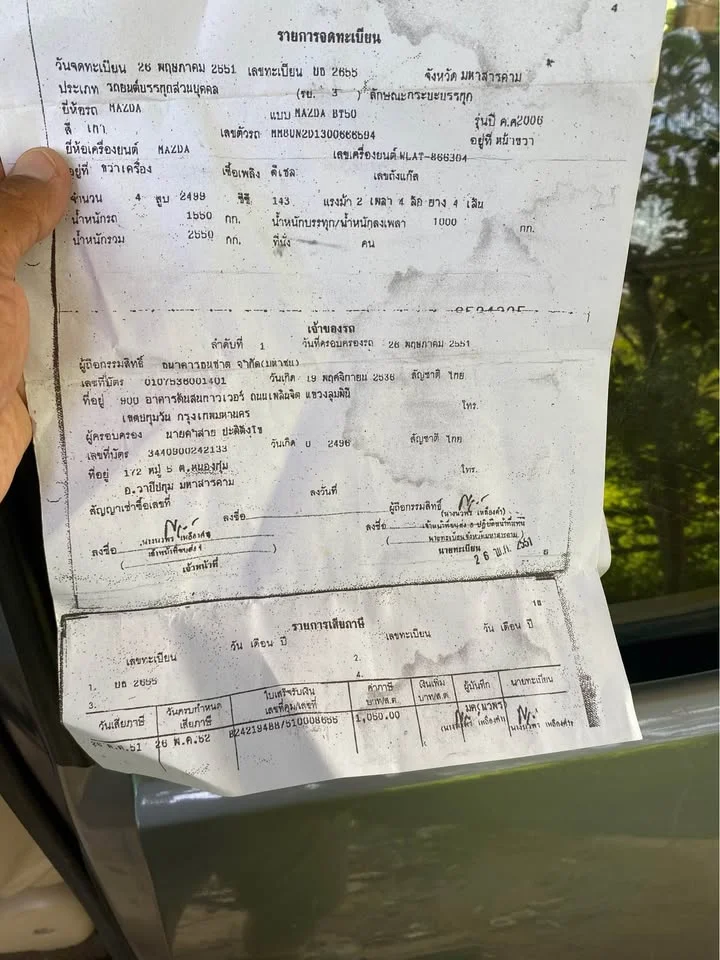 4
รายการจดทะเบียน
วันจดทะเบียน 26 พฤษภาคม 2551 เลขทะเบียน บธ 2655 จังหวัด มหาสารคาม
ประเภท รถยนต์บรรทุกส่วนบุคคล (รย. 3 ) ลักษณะกระบะบรรทุก
ยี่ห้อรถ MAZDA แบบ MAZDA BT50 รุ่นปี ค.ศ2006
สี เทา เลขตัวรถ MM8UN2D1300666594 อยู่ที่ หน้าขวา
ยี่ห้อเครื่องยนต์ MAZDA เลขเครื่องยนต์ WLAT-866304
อยู่ที่ ขวาเครื่อง เชื้อเพลิง ดีเซล เลขถังแก๊ส
จำนวน 4 สูบ 2499 ซีซี 143 แรงม้า 2 เพลา 4 ล้อ ยาง 4 เส้น
น้ำหนักรถ 1550 กก. น้ำหนักบรรทุก/น้ำหนักลงเพลา 1000 กก.
น้ำหนักรวม 2550 กก. ที่นั่ง คน
เจ้าของรถ
ลำดับที่ 1 วันที่ครอบครองรถ 26 พฤษภาคม 2551
ผู้ถือกรรมสิทธิ์ ธนาคารธนชาต จำกัด(มหาชน)
เลขที่บัตร 0107536001401 วันเกิด 19 พฤศจิกายน 2536 สัญชาติ ไทย
ที่อยู่ 900 อาคารต้นสนทาวเวอร์ ถนนเพลินจิต แขวงลุมพินี
เขตปทุมวัน กรุงเทพมหานคร โทร.
ผู้ครอบครอง
เลขที่บัตร 3440900242133 วันเกิด 0 2496 สัญชาติ ไทย
ที่อยู่ 172 หมู่ 5 ต.หนองทุ่ม โทร.
อ.วาปีปทุม มหาสารคาม
สัญญาเช่าซื้อเลขที่ ลงวันที่
ลงชื่อ ผู้ถือกรรมสิทธิ์
ลงชื่อ ลงชื่อ
เจ้าหน้าที่ นายทะเบียน 26 พ.ค. 2551
รายการเสียภาษี
18
เลขทะเบียน วัน เดือน ปี เลขทะเบียน วัน เดือน ปี
1. บธ 2655 2.
3. 4.
วันเสียภาษี วันครบกำหนดเสียภาษี ใบเสร็จรับเงิน เลขที่คุม/เลขที่ ค่าภาษี บาท/ส.ต. เงินเพิ่ม บาท/ส.ต. ผู้บันทึก นายทะเบียน
26 พ.ค.52 1,050.00